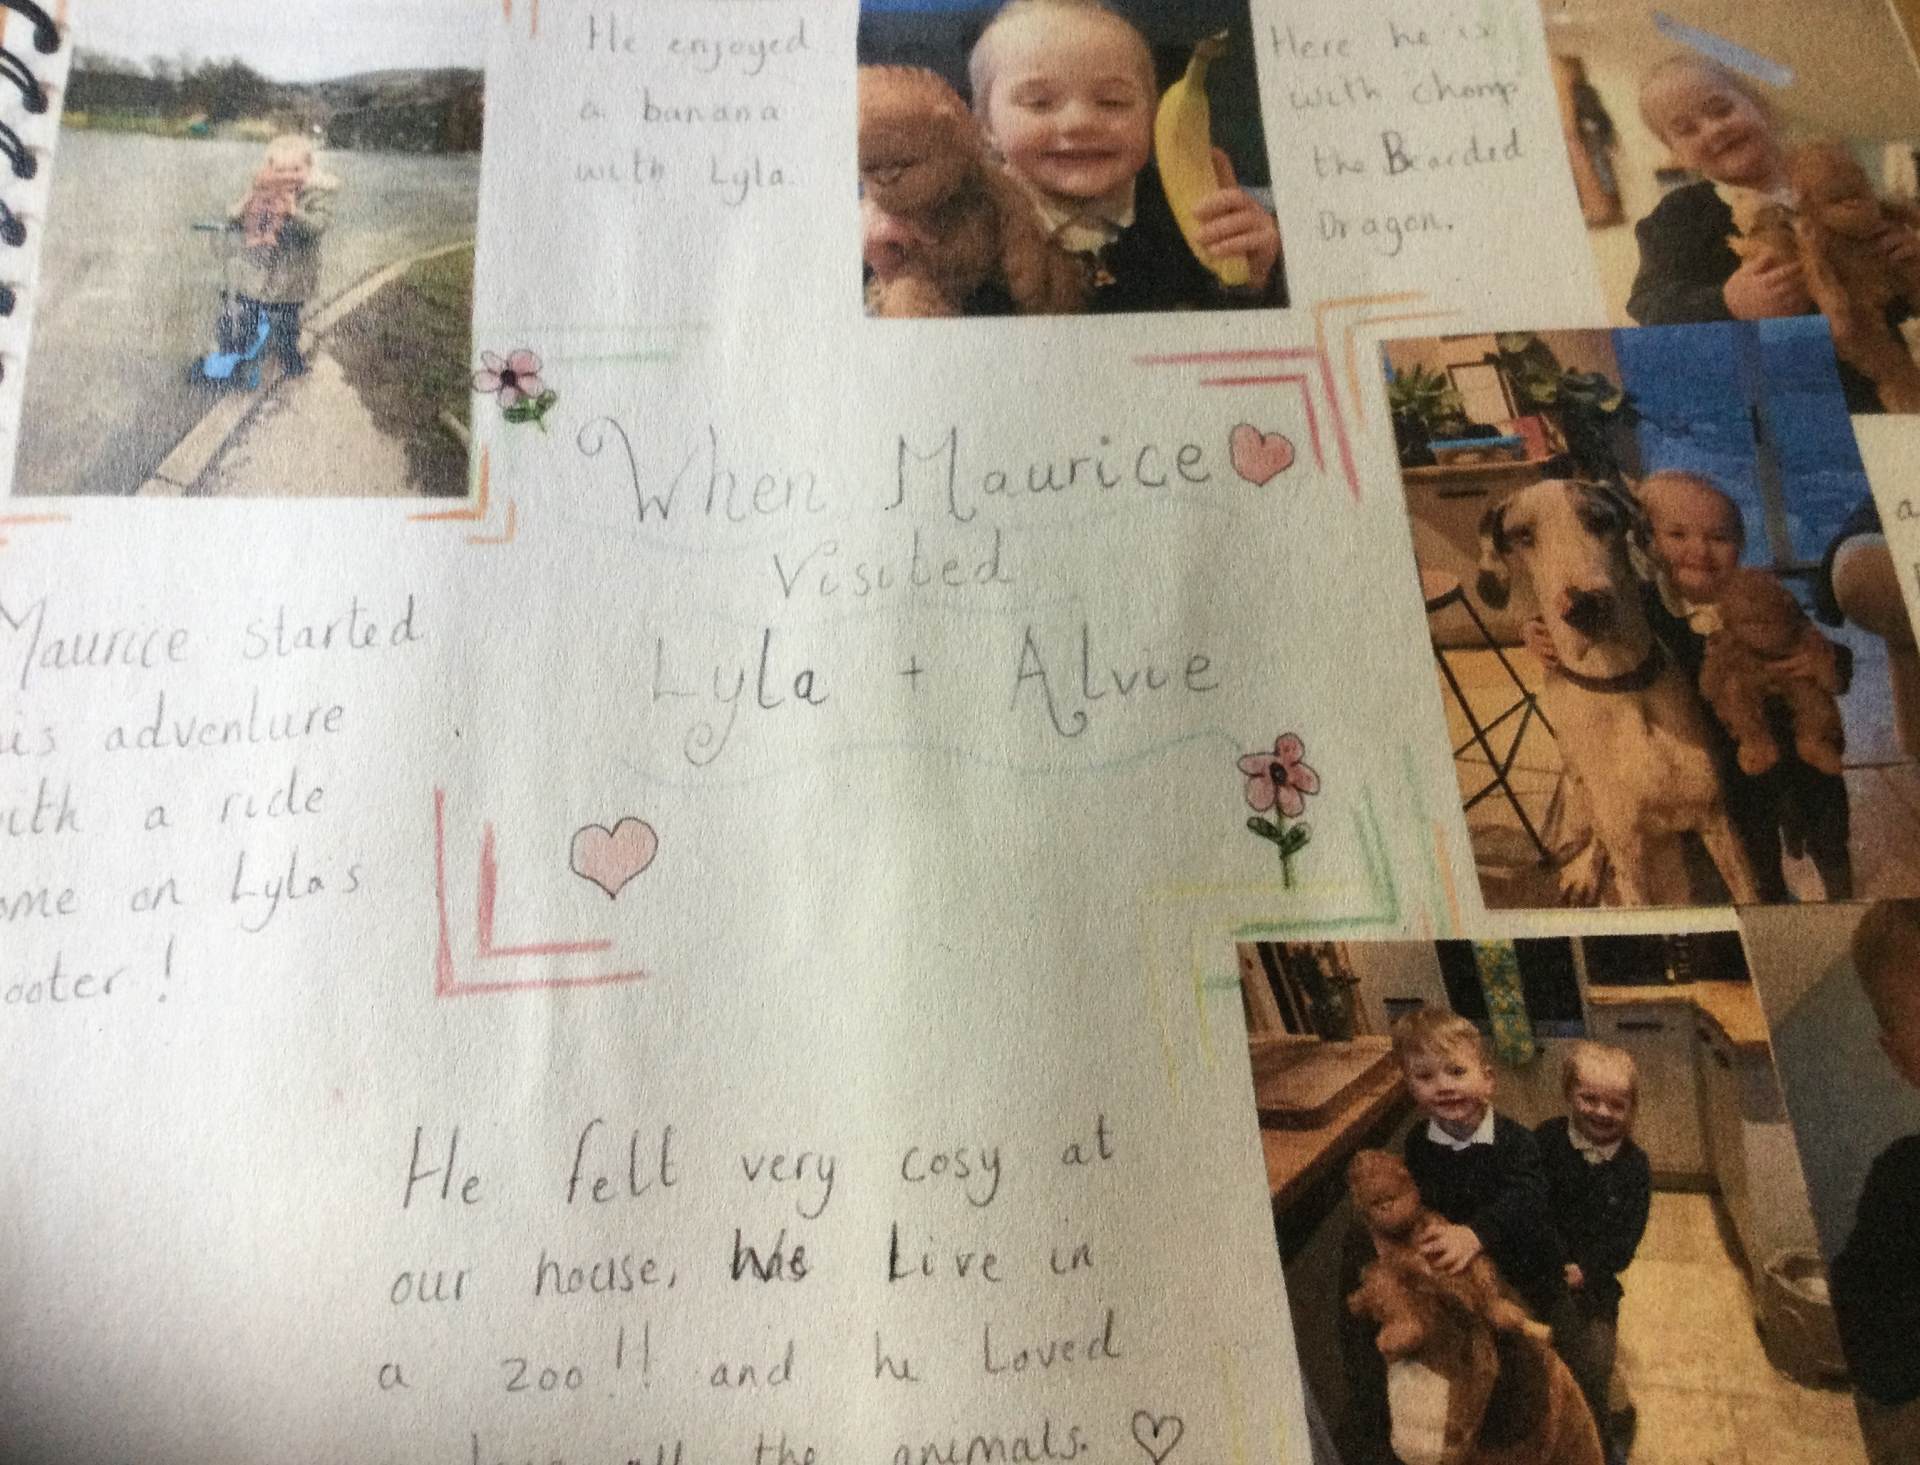 He enjoyed
a banana
with Lyla.
Here he is
with Chomp
the Bearded
Dragon.
When Maurice
Visited
Lyla + Alvie
Maurice started
adventure
with a ride
on Lyla's
He felt very cosy at
our house, We Live in
a zoo!! and he Loved
all the animals.